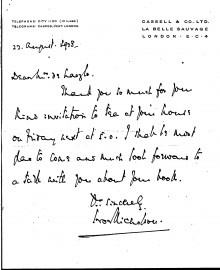 TELEPHONE CITY 1180 (10 LINES)
TELEGRAMS: CASPEG, CENT LONDON
CASSELL & CO. LTD.
LA BELLE SAUVAGE
LONDON · E·C·4
22 August. 1938.
Dear Mr. de Laszlo.
Thank you so much for your
kind invitation to tea at your house
on Friday next at 5.0. I shall be most
glad to come and much look forward to
a talk with you about your book.
Yrs sincerely
Nicholson.